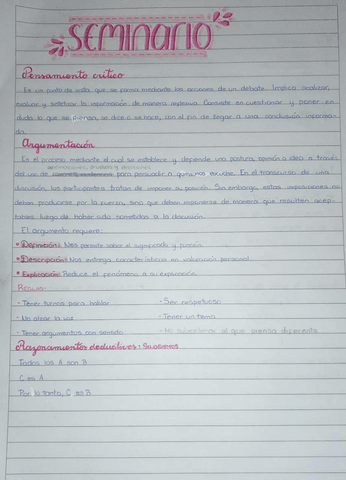 SEMINARIO
Pensamiento crítico
Es un punto de vista que se forma mediante las acciones de un debate. Implica analizar,
evaluar y sintetizar la información de manera imparcial. Consiste en cuestionar y poner en
duda lo que se piensa, se dice o se hace, con el fin de llegar a una conclusión informa-
da.
Argumentación
Es el proceso mediante el cual se establece y depende una postura, opinión o idea a través
del uso de para persuadir a quien nos escucha. En el transcurso de una
discusión, los participantes tratan de imponer su posición. Sin embargo, estas imposiciones no
deben producirse por la fuerza, sino que deben imponerse de manera que resulten acep-
tables luego de haber sido sometidas a la discusión.
El argumento requiere:
• Definición: Nos permite saber el significado y función.
• Descripción: Nos entrega características sin valoración personal.
• Explicación: Reduce el fenómeno a su explicación.
Reglas
- Tener turnos para hablar
- Ser respetuoso
- No alzar la voz
- Tener un tema
- Tener argumentos con sentido
- No subestimar al que piensa diferente
Razonamientos deductivos: Silogismos
Todos los A son B
C es A
Por lo tanto, C es B